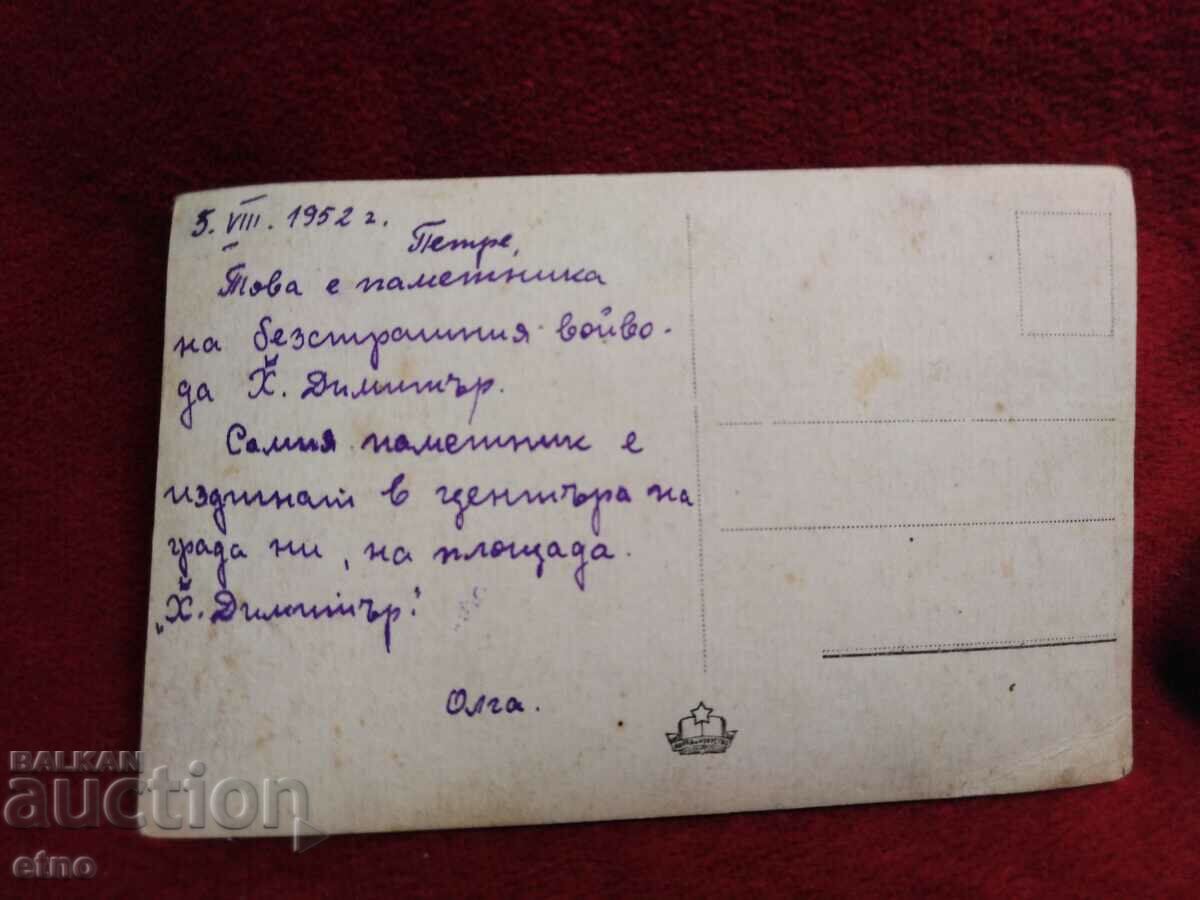 5. VIII. 1952 г.
Петре,
Това е паметника
на безстрашния войво-
да Х. Димитър.
Самия паметник е
издигнат в центъра на
града ни, на площада
„Х. Димитър."
Олга.
BALKAN
auction
etno